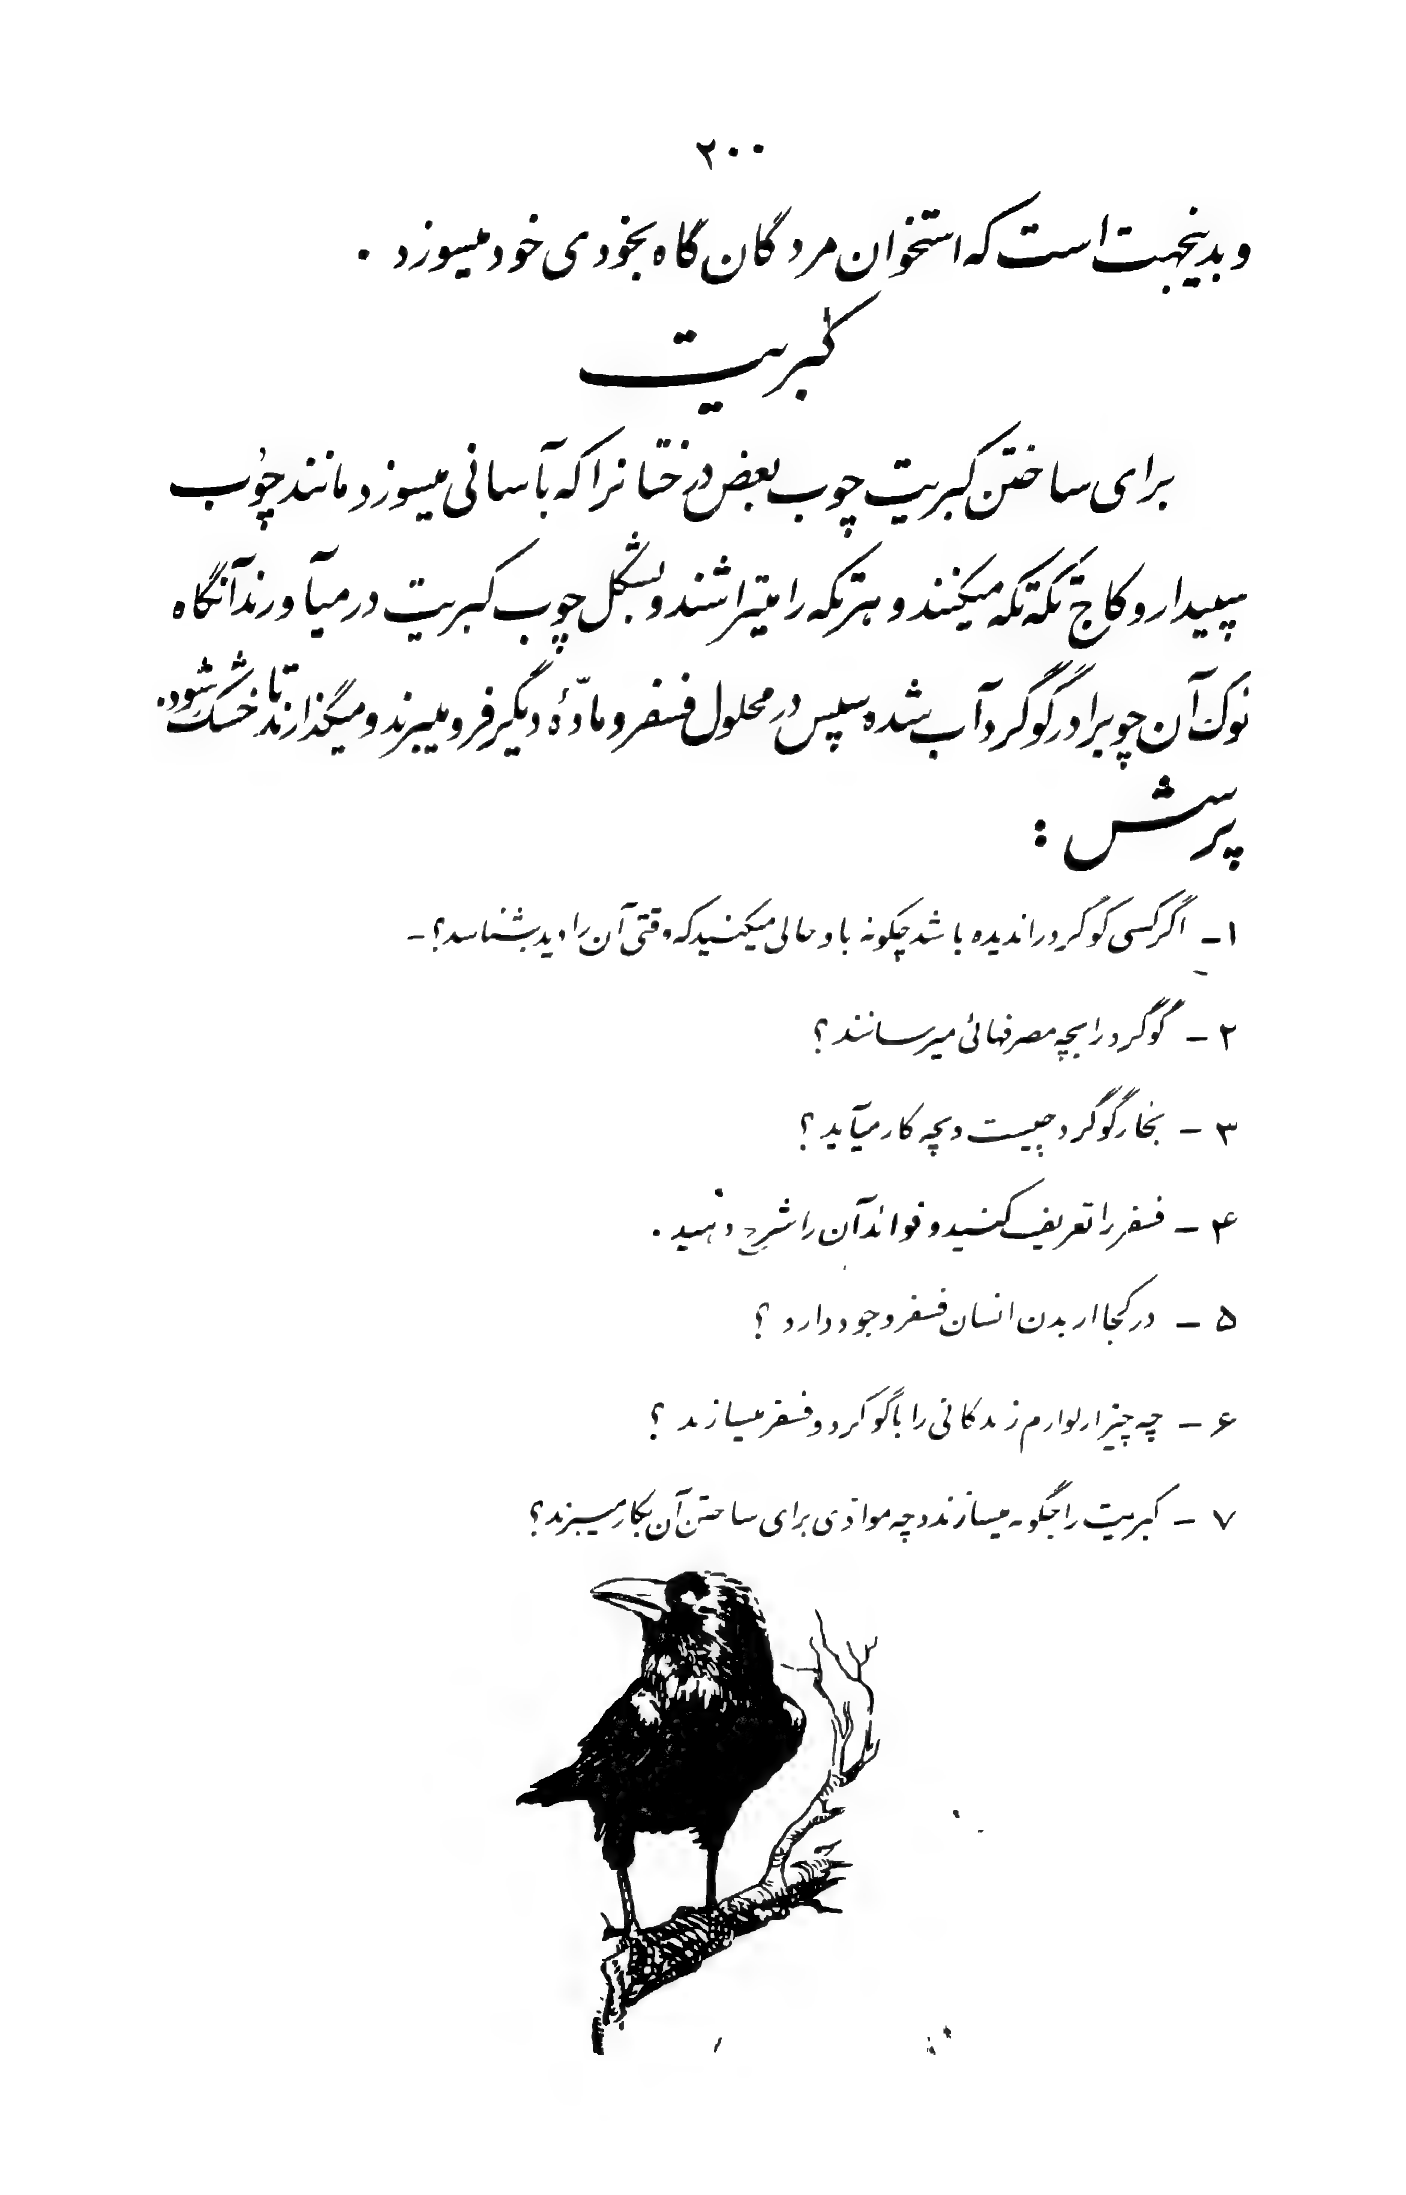 ۲۰۰
و بدینجهت است که استخوان مردگان گاه بخودی خود میسوزد .
کبریت
برای ساختن کبریت چوب بعض درختانرا که بآسانی میسوزد مانند چوب
سپیدار و کاج تکه تکه میکنند و هر تکه را میتراشند و بشکل چوب کبریت در میآورند آنگاه
نوک آن چوبرا در گوگرد آب شده سپس در محلول فسفر و مادّهٔ دیگر فرو میبرند و میگذارند تا خشک شود.
پرسش :
۱ - اگر کسی گوگرد را ندیده باشد چگونه باو حالی میکنید که وقتی آن را دید بشناسد؟ -
۲ - گوگرد را بچه مصرفهائی میرسانند ؟
۳ - بخار گوگرد چیست و بچه کار میآید ؟
۴ - فسفر را تعریف کنید و فوائد آن را شرح دهید .
۵ - در کجا از بدن انسان فسفر وجود دارد ؟
۶ - چه چیز از لوازم زندگانی را با گوگرد و فسفر میسازند ؟
۷ - کبریت را چگونه میسازند و چه موادّی برای ساختن آن بکار میبرند؟